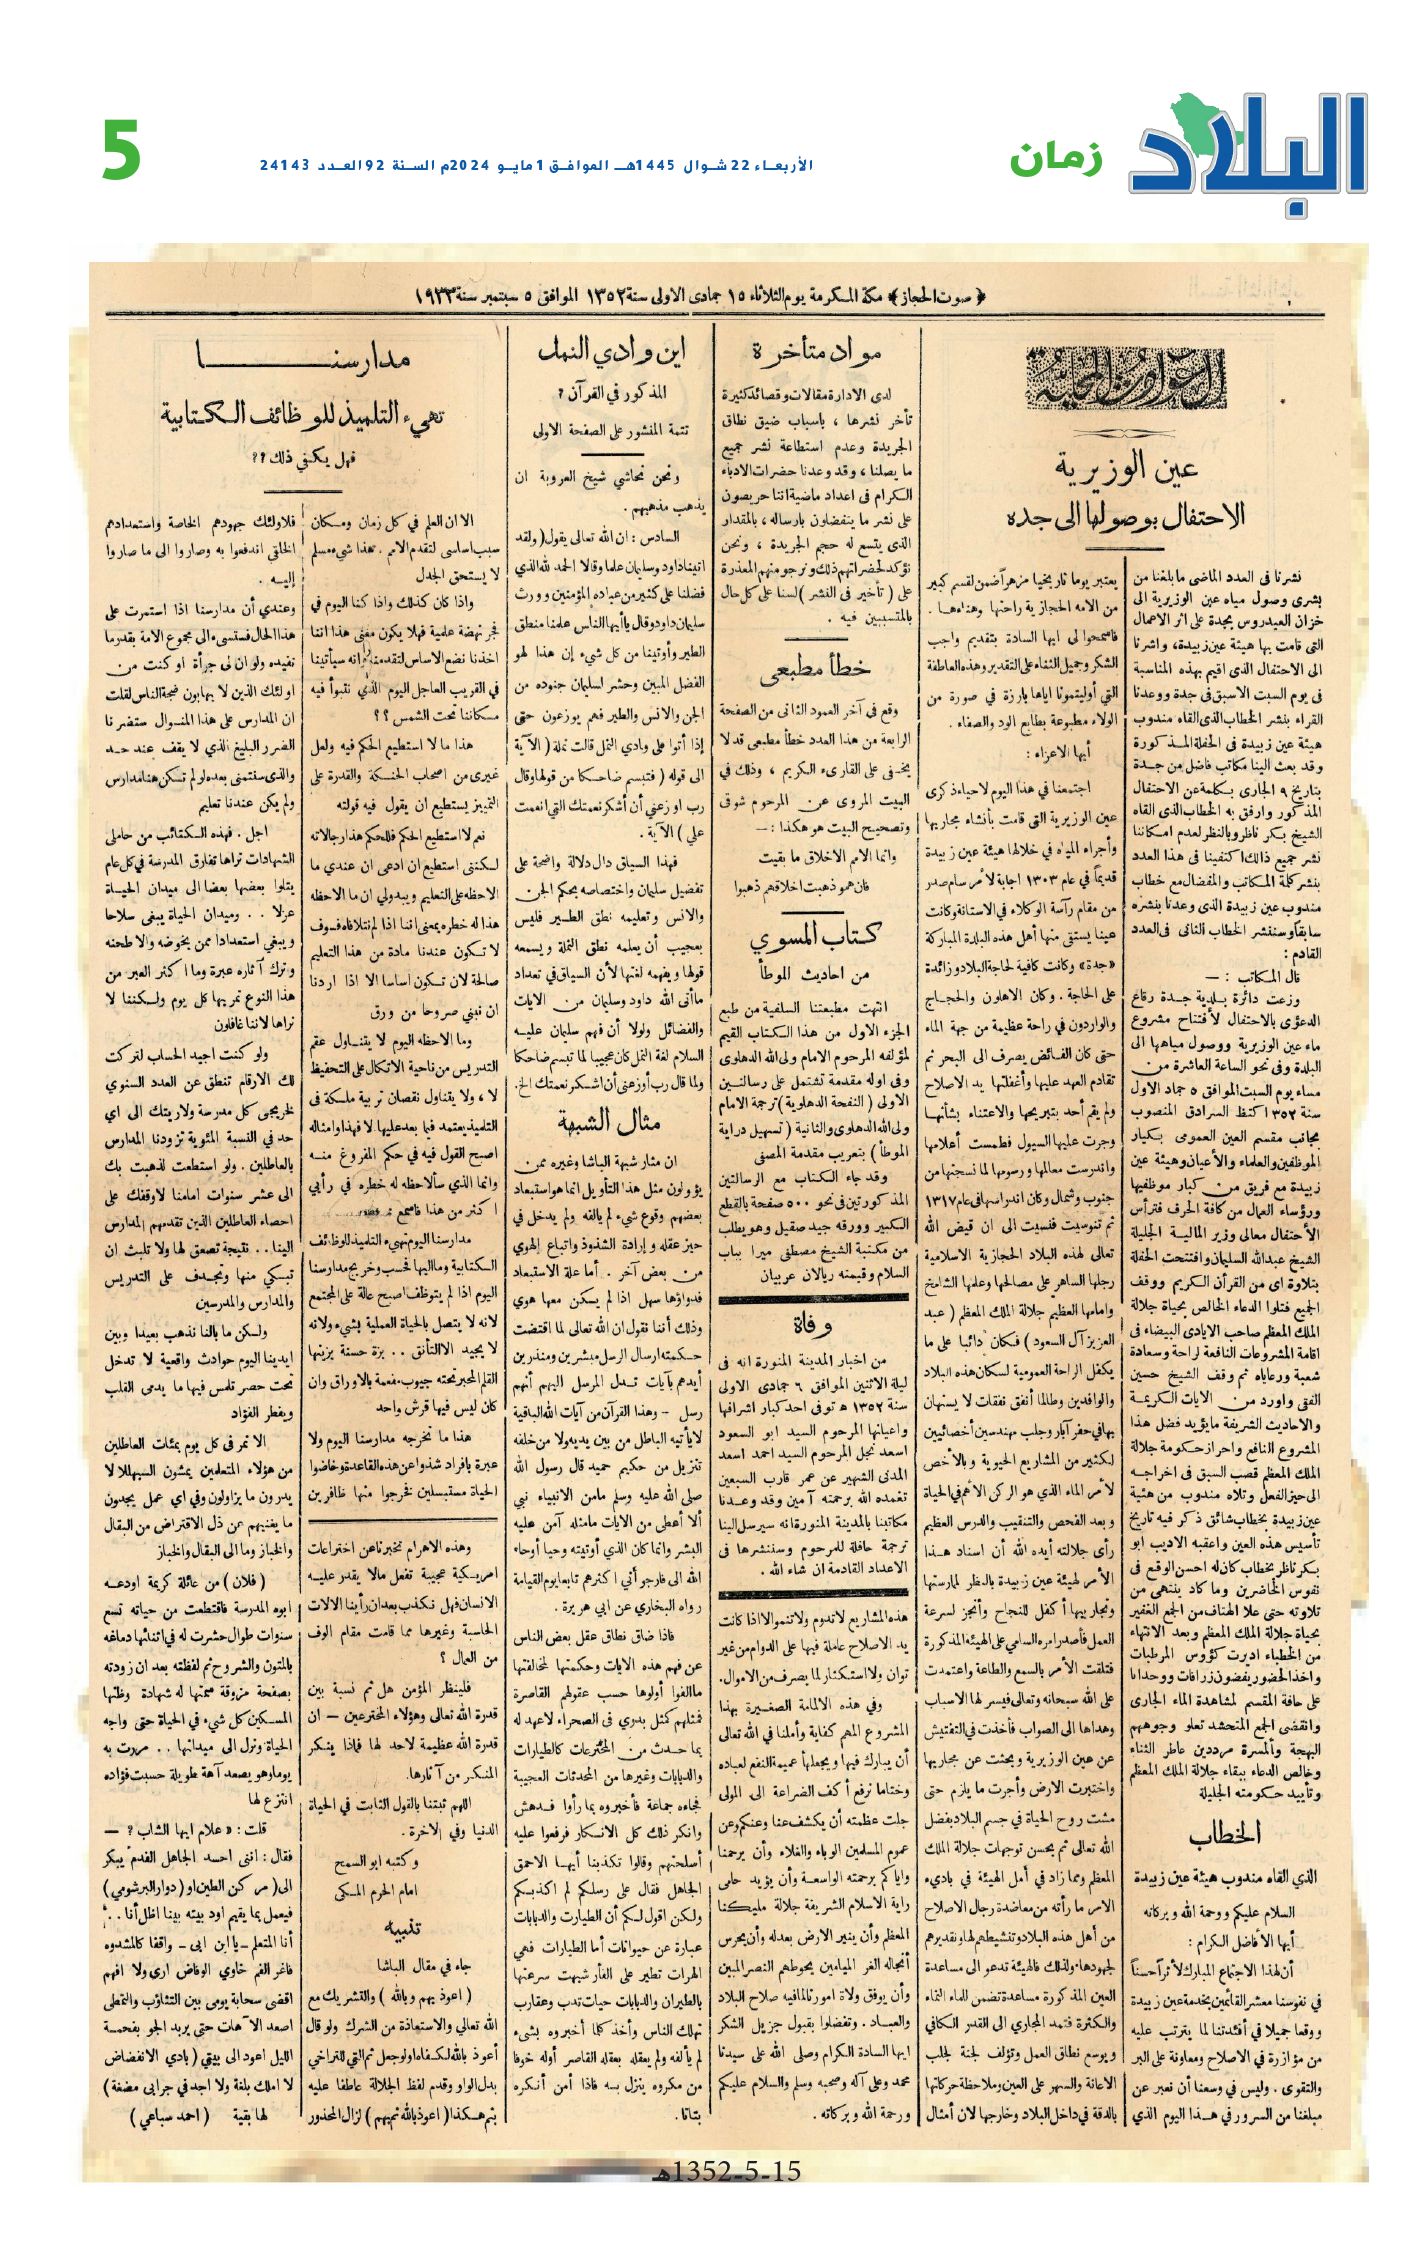 البلاد
زمان
الأربعاء 22 شوال 1445هـ الموافق 1 مايو 2024م السنة 92 العدد 24143
5
﴿ صوت الحجاز ﴾ مكة المكرمة يوم الثلاثاء ١٥ جمادى الاولى سنة ١٣٥٢ الموافق ٥ سبتمبر سنة ١٩٣٣
عين الوزيرية
الاحتفال بوصولها الى جده
نشرنا فى العدد الماضى ما بلغنا من
بشرى وصول مياه عين الوزيرية الى
خزان العيدروس بجدة على اثر الاعمال
التى قامت بها هيئة عين زبيدة، واشرنا
الى الاحتفال الذى اقيم بهذه المناسبة
فى يوم السبت الاسبق فى جدة ووعدنا
القراء بنشر الخطاب الذى القاه مندوب
هيئة عين زبيدة فى الحفلة المذكورة
وقد بعث الينا مكاتب فاضل من جدة
بتاريخ ٩ الجارى بكلمة عن الاحتفال
المذكور وارفق به الخطاب الذى القاه
الشيخ بكر ناظر وبالنظر لعدم امكاننا
نشر جميع ذلك اكتفينا فى هذا العدد
بنشر كلمة المكاتب والمفضال مع خطاب
مندوب عين زبيدة الذى وعدنا بنشره
سابقا وسننشر الخطاب الثانى فى العدد
القادم :
قال المكاتب : —
وزعت دائرة بلدية جدة رقاع
الدعوى بالاحتفال لأفتتاح مشروع
ماء عين الوزيرية ووصول مياهها الى
البلدة وفى نحو الساعة العاشرة من
مساء يوم السبت الموافق ٥ جماد الاول
سنة ١٣٥٢ اكتظ السرادق المنصوب
بجانب مقسم العين العمومى بكبار
الموظفين والعلماء والأعيان وهيئة عين
زبيدة مع فريق من كبار موظفيها
ورؤساء العمال من كافة الحرف فترأس
الأحتفال معالى وزير المالية الجليلة
الشيخ عبدالله السليمان وافتتحت الحفلة
بتلاوة اى من القرأن الكريم ووقف
الجميع فتلوا الدعاء الخالص بحياة جلالة
الملك المعظم صاحب الايادى البيضاء فى
اقامة المشروعات النافعة لراحة وسعادة
شعبة ورعاياه ثم وقف الشيخ حسين
الفقى واورد من الايات الكريمة
والاحاديث الشريفة ما يؤيد فضل هذا
المشروع النافع واحراز حكومة جلالة
الملك المعظم قصب السبق فى اخراجه
الى حيز الفعل وتلاه مندوب من هئية
عين زبيدة بخطاب شائق ذكر فيه تاريخ
تأسيس هذه العين واعقبه الاديب ابو
بكر ناظر بخطاب كان له احسن الوقع فى
نفوس الحاضرين وما كاد ينتهى من
تلاوته حتى علا الهتاف من الجمع الغفير
بحياة جلالة الملك المعظم وبعد الانتهاء
من الخطباء اديرت كؤوس المرطبات
واخذ الحضور ينفضون زرافات ووحدانا
على حافة المقسم لمشاهدة الماء الجارى
وانقضى الجمع المتحشد تعلو وجوههم
البهجة والمسرة مرددين عاطر الثناء
وخالص الدعاء ببقاء جلالة الملك المعظم
وتأييد حكومته الجليلة
الخطاب
الذي القاه مندوب هيئة عين زبيدة
السلام عليكم ورحمة الله وبركاته
أيها الأفاضل الكرام :
أن لهذا الاجتماع المبارك لأثراً حسناً
في نفوسنا معشر القائمين بخدمة عين زبيدة
ووقعا جميلا في أفئدتنا لما يترتب عليه
من مؤازرة في الاصلاح ومعاونة على البر
والتقوى . وليس في وسعنا أن نعبر عن
مبلغنا من السرور في هذا اليوم الذي
يعتبر يوما تاريخيا مزهراً ضمن لقسم كبير
من الامه الحجازية راحتها وهناءها .
فاسمحوا لى ايها السادة بتقديم واجب
الشكر وجميل الثناء على التقدير وهذه العاطفة
التي أوليتمونا اياها بارزة في صورة من
الولاء مطبوعة بطابع الود والصفاء .
أيها الاعزاء :
اجتمعنا في هذا اليوم لاحياء ذكرى
عين الوزيرية التى قامت بأنشاء مجاريها
وأجراء المياه في خلالها هيئة عين زبيدة
قديماً في عام ١٣٠٣ اجابة لأمر سام صدر
من مقام رآسة الوكلاء في الاستانة وكانت
عينا يستقى منها أهل هذه البلدة المباركة
«جدة» وكانت كافية لحاجة البلاد وزائدة
على الحاجة . وكان الاهلون والحجاج
والواردون في راحة عظيمة من جهة الماء
حتى كان الفائض يصرف الى البحر ثم
تقادم العهد عليها وأغفلتها يد الاصلاح
ولم يقم أحد بتبريحها والاعتناء بشأنها
وجرت عليها السيول فطمست أعلامها
واندرست معالمها ورسومها لما نسجتها من
جنوب وشمال وكان اندراسها فى عام ١٣١٧
ثم تنوسيت فنسيت الى ان قيض الله
تعالى لهذه البلاد الحجازية الاسلامية
رجلها الساهر على مصالحها وعلمها الشامخ
وامامها العظيم جلالة الملك المعظم ( عبد
العزيز آل السعود ) فكان دائبا على ما
يكفل الراحة العمومية لسكان هذه البلاد
والوافدين وطالما أنفق نفقات لا يستهان
بها فى حفر آبار وجلب مهندسين أخصائيين
لكثير من المشاريع الحيوية وبالأخص
لأمر الماء الذي هو الركن الأهم في الحياة
وبعد الفحص والتنقيب والدرس العظيم
رأى جلالته أيده الله أن اسناد هذا
الأمر لهيئة عين زبيدة بالنظر لممارستها
وتجاريبها أكفل للنجاح وأنجز لسرعة
العمل فأصدر امره السامى على الهيئة المذكورة
فتلقت الأمر بالسمع والطاعة واعتمدت
على الله سبحانه وتعالى فيسر لها الاسباب
وهداها الى الصواب فأخذت في التفتيش
عن عين الوزيرية وبحثت عن مجاريها
واختبرت الارض وأجرت ما يلزم حتى
مشت روح الحياة في جسم البلاد بفضل
الله تعالى ثم بحسن توجهات جلالة الملك
المعظم ومما زاد في أمل الهيئة في باديء
الامر ما رأته من معاضدة رجال الاصلاح
من أهل هذه البلاد وتنشيطهم لها وتقديرهم
لجهودها ولذلك فالهيئة تدعو الى مساعدة
العين المذكورة مساعدة تضمن للماء النماء
والكثرة فتمد المجاري الى القدر الكافي
ويوسع نطاق العمل وتؤلف لجنة لجلب
الاعانة والسهر على العين وملاحظة حركاتها
بالدقة في داخل البلاد وخارجها لان أمثال
مواد متأخرة
لدى الادارة مقالات وقصائد كثيرة
تأخر نشرها ، باسباب ضيق نطاق
الجريدة وعدم استطاعة نشر جميع
ما يصلنا ، وقد وعدنا حضرات الادباء
الكرام فى اعداد ماضية اننا حريصون
على نشر ما يتفضلون بارساله ، بالمقدار
الذى يتسع له حجم الجريدة ، ونحن
نؤكد لحضراتهم ذلك ونرجو منهم المعذرة
على ( تأخير فى النشر ) لسنا على كل حال
بالمتسببين فيه .
خطأ مطبعى
وقع فى آخر العمود الثانى من الصفحة
الرابعة من هذا العدد خطأ مطبعى قد لا
يخفى على القارىء الكريم ، وذلك في
البيت المروى عن المرحوم شوقى
وتصحيح البيت هو هكذا : —
وانما الامم الاخلاق ما بقيت
فان همو ذهبت اخلاقهم ذهبوا
كتاب المسوي
من احاديث الموطأ
انتهت مطبعتنا السلفية من طبع
الجزء الاول من هذا الكتاب القيم
لمؤلفه المرحوم الامام ولى الله الدهلوى
وفى اوله مقدمة تشتمل على رسالتين
الاولى ( النفحة الدهلوية ) ترجمة الامام
ولى الله الدهلوى والثانية ( تسهيل دراية
الموطأ ) بتعريب مقدمة المصفى
وقد جاء الكتاب مع الرسالتين
المذكورتين فى نحو ٥٠٠ صفحة بالقطع
الكبير وورقه جيد صقيل وهو يطلب
من مكتبة الشيخ مصطفى ميرا بباب
السلام وقيمته ريالان عربيان
وفاة
من اخبار المدينة المنورة انه فى
ليلة الاثنين الموافق ٦ جمادى الاولى
سنة ١٣٥٢ ه توفى احد كبار اشرافها
واعيانها المرحوم السيد ابو السعود
اسعد نجل المرحوم السيد احمد اسعد
المدنى الشهير عن عمر قارب السبعين
تغمده الله برحمته آمين وقد وعدنا
مكاتبنا بالمدينة المنورة انه سيرسل الينا
ترجمة حافلة للمرحوم وسننشرها فى
الاعداد القادمة ان شاء الله .
هذه المشاريع لا تدوم ولا تنمو الا اذا كانت
يد الاصلاح عاملة فيها على الدوام من غير
توان ولا استكثار لما يصرف من الاموال.
وفي هذه الالمامة الصغيرة بهذا
المشروع المهم كفاية وأملنا في الله تعالى
أن يبارك فيها ويجعلها عميمة النفع لعباده
وختاما نرفع أكف الضراعة الى المولى
جلت عظمته أن يكشف عنا وعنكم وعن
عموم المسلمين الوباء والغلاء وأن يرحمنا
واياكم برحمته الواسعة وأن يؤيد حامى
راية الاسلام الشريفة جلالة مليكنا
المعظم وأن ينير الارض بعدله وأن يحرس
أنجاله الغر الميامين يحوطهم النصر المبين
وأن يوفق ولاة امورنا لما فيه صلاح البلاد
والعباد . وتفضلوا بقبول جزيل الشكر
ايها السادة الكرام وصلى الله على سيدنا
محمد وعلى آله وصحبه وسلم والسلام عليكم
ورحمة الله وبركاته .
اين وادي النمل
المذكور في القرآن ؟
تتمة المنشور على الصفحة الاولى
ونحن نحاشي شيخ العروبة ان
يذهب مذهبهم .
السادس : ان الله تعالى يقول ( ولقد
اتينا داود وسليمان علما وقالا الحمد لله الذي
فضلنا على كثير من عباده المؤمنين وورث
سليمان داود وقال يا أيها الناس علمنا منطق
الطير وأوتينا من كل شيء إن هذا لهو
الفضل المبين وحشر لسليمان جنوده من
الجن والانس والطير فهم يوزعون حتى
إذا أتوا على وادي النمل قالت نملة ( الآية
الى قوله ( فتبسم ضاحكا من قولها وقال
رب اوزعني أن أشكر نعمتك التي انعمت
علي ) الآية .
فهذا السياق دال دلالة واضحة على
تفضيل سليمان واختصاصه بحكم الجن
والانس وتعليمه نطق الطير فليس
بعجيب أن يعلمه نطق النملة ويسمعه
قولها ويفهمه لغتها لأن السياق في تعداد
ما آتى الله داود وسليمان من الايات
والفضائل ولولا أن فهم سليمان عليه
السلام لغة النمل كان عجيبا لما تبسم ضاحكا
ولما قال رب أوزعنى أن اشكر نعمتك الخ.
مثال الشبهة
ان مثار شبهة الباشا وغيره ممن
يؤولون مثل هذا التأويل انما هو استبعاد
بعضهم وقوع شيء لم يالفه ولم يدخل في
حيز عقله وإرادة الشذوذ واتباع الهوي
من بعض آخر . أما علة الاستبعاد
فدواؤها سهل اذا لم يسكن معها هوي
وذلك أننا نقول ان الله تعالى لما اقتضت
حكمته ارسال الرسل مبشرين ومنذرين
أيدهم بآيات تدل المرسل اليهم أنهم
رسل – وهذا القرآن من آيات الله الباقية
لا يأتيه الباطل من بين يديه ولا من خلفه
تنزيل من حكيم حميد قال رسول الله
صلى الله عليه وسلم مامن الانبياء نبي
ألا أعطى من الايات مامثله آمن عليه
البشر وانما كان الذي أوتيته وحيا أوحاه
الله الى فارجو أني اكثرهم تابعا يوم القيامة
رواه البخاري عن ابي هريرة .
فاذا ضاق نطاق عقل بعض الناس
عن فهم هذه الايات وحكمتها لمخالفتها
ماالفوا أولوها حسب عقولهم القاصرة
فمثلهم كمثل بدوى فى الصحراء لا عهد له
بما حدث من المخترعات كالطيارات
والدبابات وغيرها من المحدثات العجيبة
فجاءه جماعة فأخبروه بما رأوا فدهش
وانكر ذلك كل الانسكار فرفعوا عليه
أسلحتهم وقالوا تكذبنا أيها الاحمق
الجاهل فقال على رسلكم لم اكذبكم
ولكن اقول لكم أن الطيارت والدبابات
عبارة عن حيوانات أما الطيارات فهي
الهرات تطير على الفأر شبهت سرعتها
بالطيران والدبابات حيات تدب وعقارب
تهلك الناس وأخذ كما أخبروه بشيء
لم يألفه ولم يعقله بعقله القاصر أوله خوفا
من مكروه ينزل به فاذا أمن أنكره
بتاتا.
مدارسنا
تهيء التلميذ للوظائف الكتابية
فهل يكفي ذلك ؟؟
الا ان العلم في كل زمان ومكان
سبب اساسى لتقدم الامم . هذا شيء مسلم
لا يستحق الجدل
واذا كان كذلك واذا كنا اليوم في
فجر نهضة علمية فهلا يكون معنى هذا اننا
اخذنا نضع الاساس لتقدمنا وانه سيأتينا
في القريب العاجل اليوم الذي نتبوأ فيه
مسكاننا تحت الشمس ؟ ؟
هذا ما لا استطيع الحكم فيه ولعل
غيرى من اصحاب الحنكة والقدرة على
التمييز يستطيع ان يقول فيه قولته
نعم لا استطيع الحكم فللحكم هذا رجالاته
لكننى استطيع ان ادعى ان عندي ما
الاحظه على التعليم ويبدولي ان ما الاحظه
هذا له خطره بمعنى اننا اذا لم نتلافاه فسوف
لا تكون عندنا مادة من هذا التعليم
صالحة لان تكون اساسا الا اذا اردنا
ان نبني صروحا من ورق
وما الاحظه اليوم لا يتناول عقم
التدريس من ناحية الاتكال على التحفيظ
لا ، ولا يقناول نقصان تربية ملكة فى
التلميذ يعتمد فيما بعد عليها لا فهذا وامثاله
اصبح القول فيه في حكم المفروغ منه
وانما الذي سألاحظه له خطره في رأيي
اكثر من هذا فاسمع
مدارسنا اليوم تهيء التلميذ للوظائف
الكتابية وماليها فحسب وخريج مدارسنا
اليوم اذا لم يتوظف اصبح عالة على المجتمع
لانه لا يتصل بالحياة العملية بشيء ولانه
لا يجيد الا التأنق . . بزة حسنة يزينها
القلم المحبر تحته جيوب مفعمة بالاوراق وان
كان ليس فيها قرش واحد
هذا ما تخرجه مدارسنا اليوم ولا
عبرة بافراد شذوا عن هذه القاعدة وخاضوا
الحياة مستبسلين فخرجوا منها ظافرين
وهذه الاهرام تخبرنا عن اختراعات
امريكية عجيبة تفعل مالا يقدر عليه
الانسان فهل نكذب بعد ان رأينا الالات
الحاسبة وغيرها مما قامت مقام الوف
من العمال ؟
فلينظر المؤمن هل ثم نسبة بين
قدرة الله تعالى وهؤلاء المخترعين – ان
قدرة الله عظيمة لاحد لها فماذا ينكر
المنكر من آثارها.
اللهم ثبتنا بالقول الثابت في الحياة
الدنيا وفي الاخرة .
وكتبه ابو السمح
امام الحرم المكى
تنبيه
جاء في مقال الباشا
( اعوذ بهم وبالله ) والتشريك مع
الله تعالي والاستعاذة من الشرك ولو قال
أعوذ بالله لكفاه اولو جعل ثم التي للتراخي
بدل الواو وقدم لفظ الجلالة عاطفا عليه
بثم هكذا ( اعوذ بالله ثم بهم ) لزال المحذور
فلاولئك جهودهم الخاصة واستعدادهم
الخلقى اندفعوا به وصاروا الى ما صاروا
إليه .
وعندي أن مدارسنا اذا استمرت على
هذا الحال فستسىء الى مجموع الامة بقدر ما
تفيده ولو ان لى جرأة او كنت من
اولئك الذين لا يهابون ضجة الناس لقلت
ان المدارس على هذا المنوال ستضر نا
الضرر البليغ الذي لا يقف عند حد
والذى سنتمنى بعده لو لم تسكن هنا مدارس
ولم يكن عندنا تعليم
اجل . فهذه الكتائب من حاملى
الشهادات تراها تفارق المدرسة في كل عام
يتلوا بعضها بعضا الى ميدان الحياة
عزلا . . وميدان الحياة يبغى سلاحا
ويبغي استعدادا ممن يخوضه والا طحنه
وترك آثاره عبرة وما اكثر العبر من
هذا النوع تمر بها كل يوم ولكننا لا
نراها لاننا غافلون
ولو كنت اجيد الحساب لتركت
لك الارقام تنطق عن العدد السنوي
لخريجى كل مدرسة ولاريتك الى اي
حد في النسبة المئوية تزودنا المدارس
بالعاطلين . ولو استطعت لذهبت بك
الى عشر سنوات امامنا لاوقفك على
احصاء العاطلين الذين تقدمهم المدارس
الينا . . نتيجة تصعق لها ولا تلبث ان
تبكي منها وتجدف على التدريس
والمدارس والمدرسين
ولسكن ما بالنا نذهب بعيدا وبين
ايدينا اليوم حوادث واقعية لا تدخل
تحت حصر تلمس فيها ما يدمى القلب
ويفطر الفؤاد
الا تمر فى كل يوم بمئات العاطلين
من هؤلاء المتعلمين يمشون السبهللا لا
يدرون ما يزاولون وفي اي عمل يجدون
ما يغنيهم عن ذل الاقتراض من البقال
والخباز وما الى البقال والخباز
( فلان ) من عائلة كريمة اودعه
ابوه المدرسة فاقتطعت من حياته تسع
سنوات طوال حشرت له في اثنائها دماغه
بالمتون والشروح ثم لفظته بعد ان زودته
بصفحة مزوقة سمتها له شهادة وظنها
المسكين كل شيء في الحياة حتى واجه
الحياة ونزل الى ميدانها . . مررت به
يوما وهو يصعد آهة طويلة حسبت فؤاده
انتزع لها
قلت : « علام ايها الشاب ؟ —
فقال : اننى احسد الجاهل القدم يبكر
الى ( مركن الطين او ( دوار البرشومي )
فيعمل بما يقيم اود بيته بينا اظل أنا . .
أنا المتعلم – يا ابن ابى – واقفا كالمشدوه
فاغر الفم خاوي الوفاض ارى ولا افهم
اقضى سحابة يومى بين التثاؤب والتمطى
اصعد الآهات حتى يربد الجو بفحمة
الليل اعود الى بيتي ( بادي الانفضاض
لا املك بلغة ولا اجد في جرابى مضغة )
لها بقية ( احمد سباعي )
15-5-1352هـ